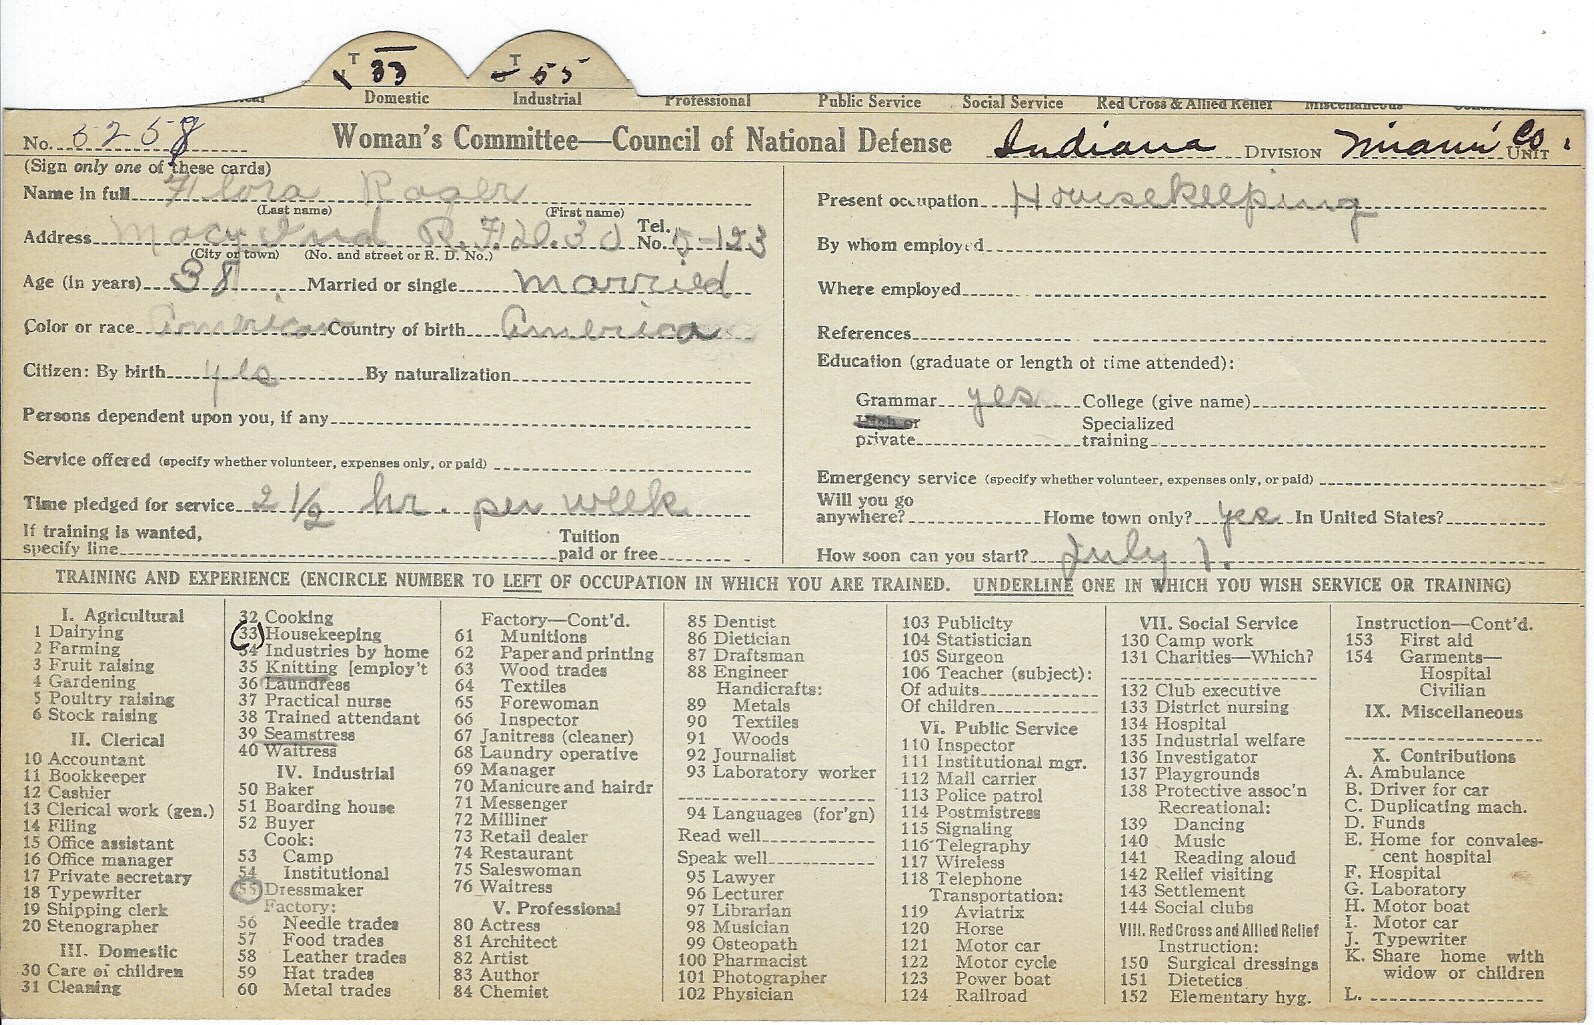 T 33 T 55
Domestic Industrial Professional Public Service Social Service Red Cross & Allied Relief Miscellaneous
No. 5258 Woman's Committee—Council of National Defense Indiana DIVISION Miami Co. UNIT
(Sign only one of these cards)
Name in full Flora Rager
(Last name) (First name)
Address Macy Ind R.F.D. 30 Tel. No. 5-123
(City or town) (No. and street or R. D. No.)
Age (in years) 38 Married or single married
Color or race American Country of birth America
Citizen: By birth yes By naturalization
Persons dependent upon you, if any
Service offered (specify whether volunteer, expenses only, or paid)
Time pledged for service 2 1/2 hr. per week
If training is wanted, specify line Tuition paid or free
Present occupation Housekeeping
By whom employed
Where employed
References
Education (graduate or length of time attended):
Grammar yes College (give name)
High or private Specialized training
Emergency service (specify whether volunteer, expenses only, or paid)
Will you go anywhere? Home town only? yes In United States?
How soon can you start? July 1.
TRAINING AND EXPERIENCE (ENCIRCLE NUMBER TO LEFT OF OCCUPATION IN WHICH YOU ARE TRAINED. UNDERLINE ONE IN WHICH YOU WISH SERVICE OR TRAINING)
I. Agricultural
1 Dairying
2 Farming
3 Fruit raising
4 Gardening
5 Poultry raising
6 Stock raising
II. Clerical
10 Accountant
11 Bookkeeper
12 Cashier
13 Clerical work (gen.)
14 Filing
15 Office assistant
16 Office manager
17 Private secretary
18 Typewriter
19 Shipping clerk
20 Stenographer
III. Domestic
30 Care of children
31 Cleaning
32 Cooking
33 Housekeeping
34 Industries by home
35 Knitting [employ't
36 Laundress
37 Practical nurse
38 Trained attendant
39 Seamstress
40 Waitress
IV. Industrial
50 Baker
51 Boarding house
52 Buyer
Cook:
53 Camp
54 Institutional
55 Dressmaker
Factory:
56 Needle trades
57 Food trades
58 Leather trades
59 Hat trades
60 Metal trades
Factory—Cont'd.
61 Munitions
62 Paper and printing
63 Wood trades
64 Textiles
65 Forewoman
66 Inspector
67 Janitress (cleaner)
68 Laundry operative
69 Manager
70 Manicure and hairdr
71 Messenger
72 Milliner
73 Retail dealer
74 Restaurant
75 Saleswoman
76 Waitress
V. Professional
80 Actress
81 Architect
82 Artist
83 Author
84 Chemist
85 Dentist
86 Dietician
87 Draftsman
88 Engineer
Handicrafts:
89 Metals
90 Textiles
91 Woods
92 Journalist
93 Laboratory worker
94 Languages (for'gn)
Read well
Speak well
95 Lawyer
96 Lecturer
97 Librarian
98 Musician
99 Osteopath
100 Pharmacist
101 Photographer
102 Physician
103 Publicity
104 Statistician
105 Surgeon
106 Teacher (subject):
Of adults
Of children
VI. Public Service
110 Inspector
111 Institutional mgr.
112 Mail carrier
113 Police patrol
114 Postmistress
115 Signaling
116 Telegraphy
117 Wireless
118 Telephone
Transportation:
119 Aviatrix
120 Horse
121 Motor car
122 Motor cycle
123 Power boat
124 Railroad
VII. Social Service
130 Camp work
131 Charities—Which?
132 Club executive
133 District nursing
134 Hospital
135 Industrial welfare
136 Investigator
137 Playgrounds
138 Protective assoc'n
Recreational:
139 Dancing
140 Music
141 Reading aloud
142 Relief visiting
143 Settlement
144 Social clubs
VIII. Red Cross and Allied Relief
Instruction:
150 Surgical dressings
151 Dietetics
152 Elementary hyg.
Instruction—Cont'd.
153 First aid
154 Garments—
Hospital
Civilian
IX. Miscellaneous
X. Contributions
A. Ambulance
B. Driver for car
C. Duplicating mach.
D. Funds
E. Home for convales-
cent hospital
F. Hospital
G. Laboratory
H. Motor boat
I. Motor car
J. Typewriter
K. Share home with
widow or children
L.